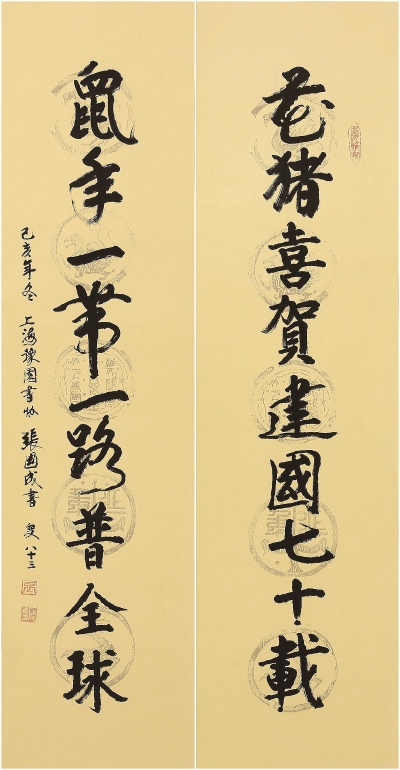 花猪喜賀建國七十載
鼠年一带一路普全球
己亥年冬 上海豫園書協 張國成書 叟八十三